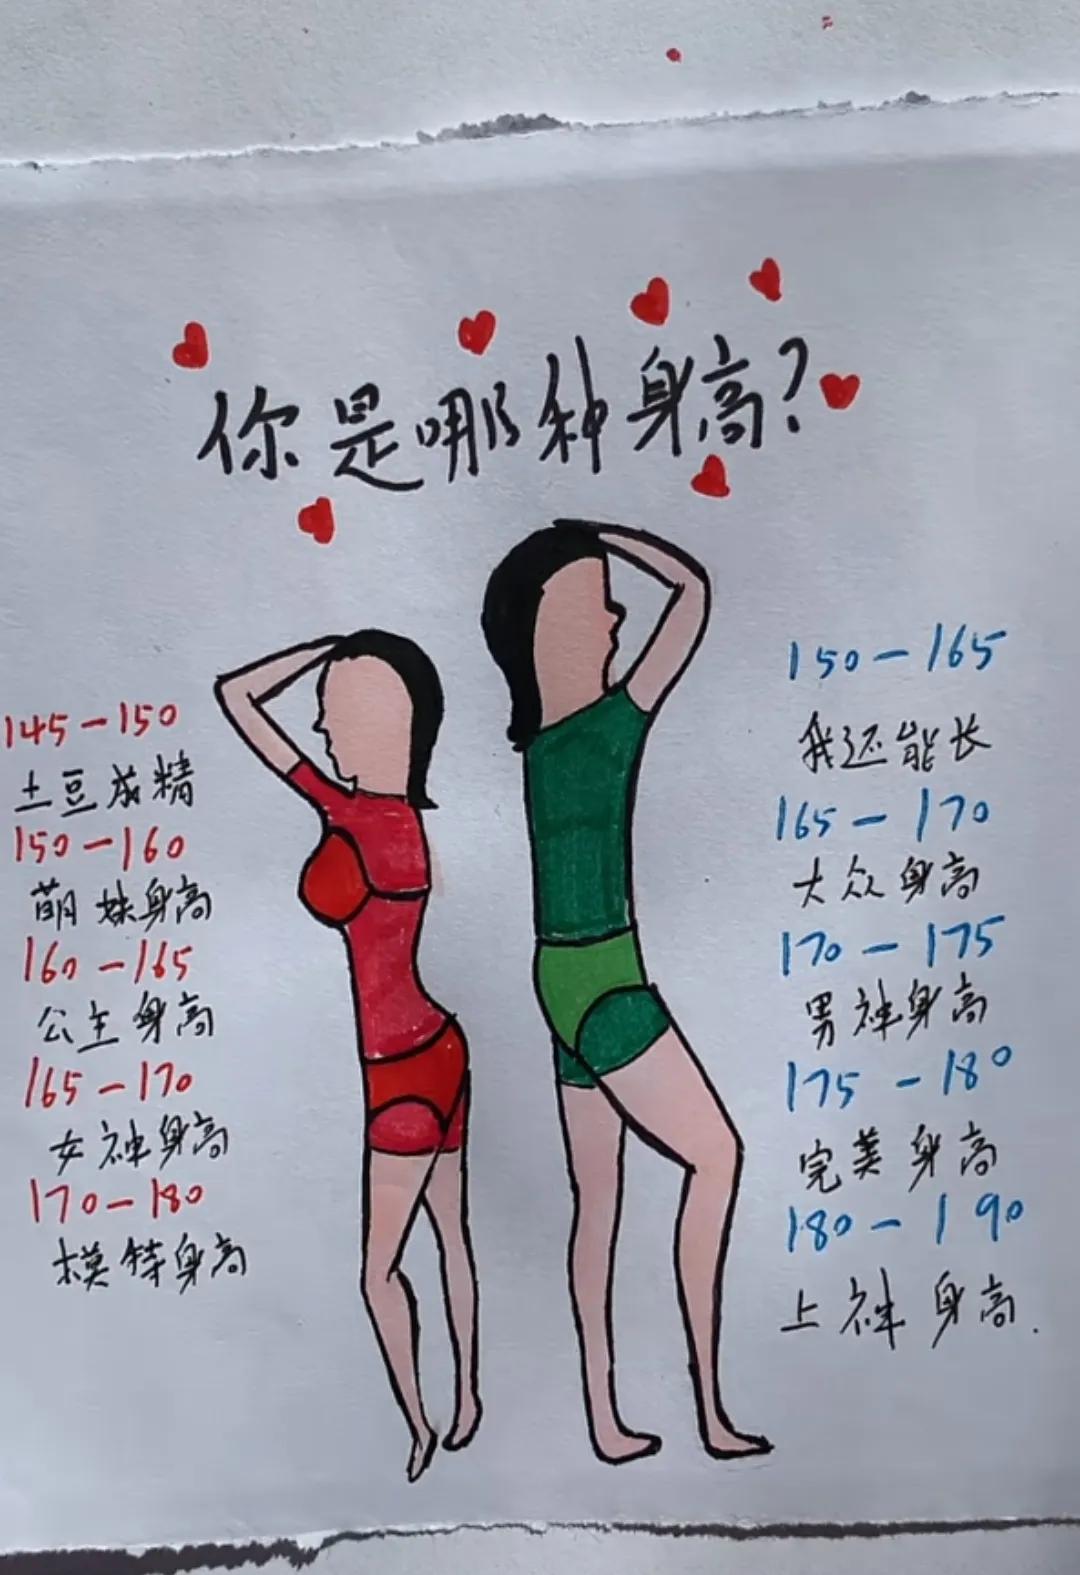 你是哪种身高?
145-150
土豆成精
150-160
萌妹身高
160-165
公主身高
165-170
女神身高
170-180
模特身高
150-165
我还能长
165-170
大众身高
170-175
男神身高
175-180
完美身高
180-190
上神身高.